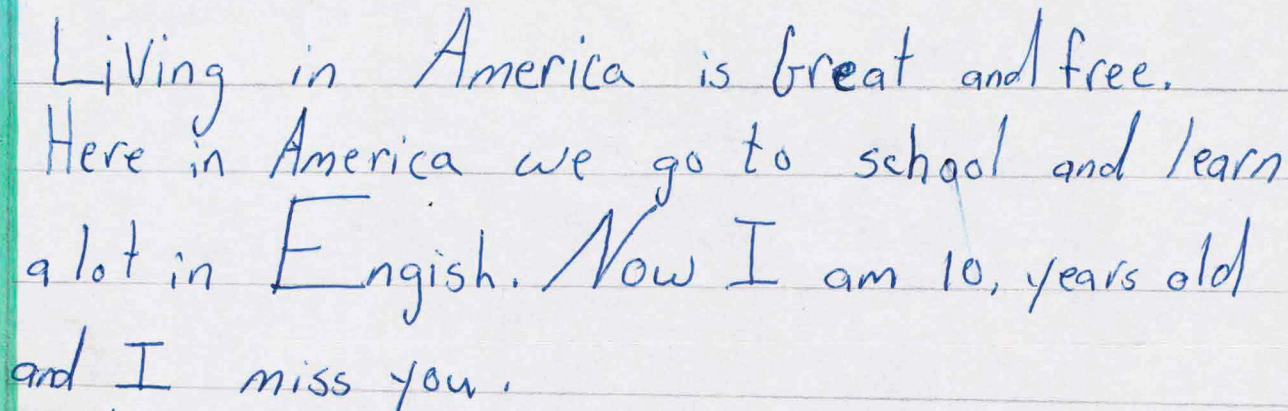 Living in America is Great and free.
Here in America we go to school and learn
a lot in Engish. Now I am 10, years old
and I miss you.